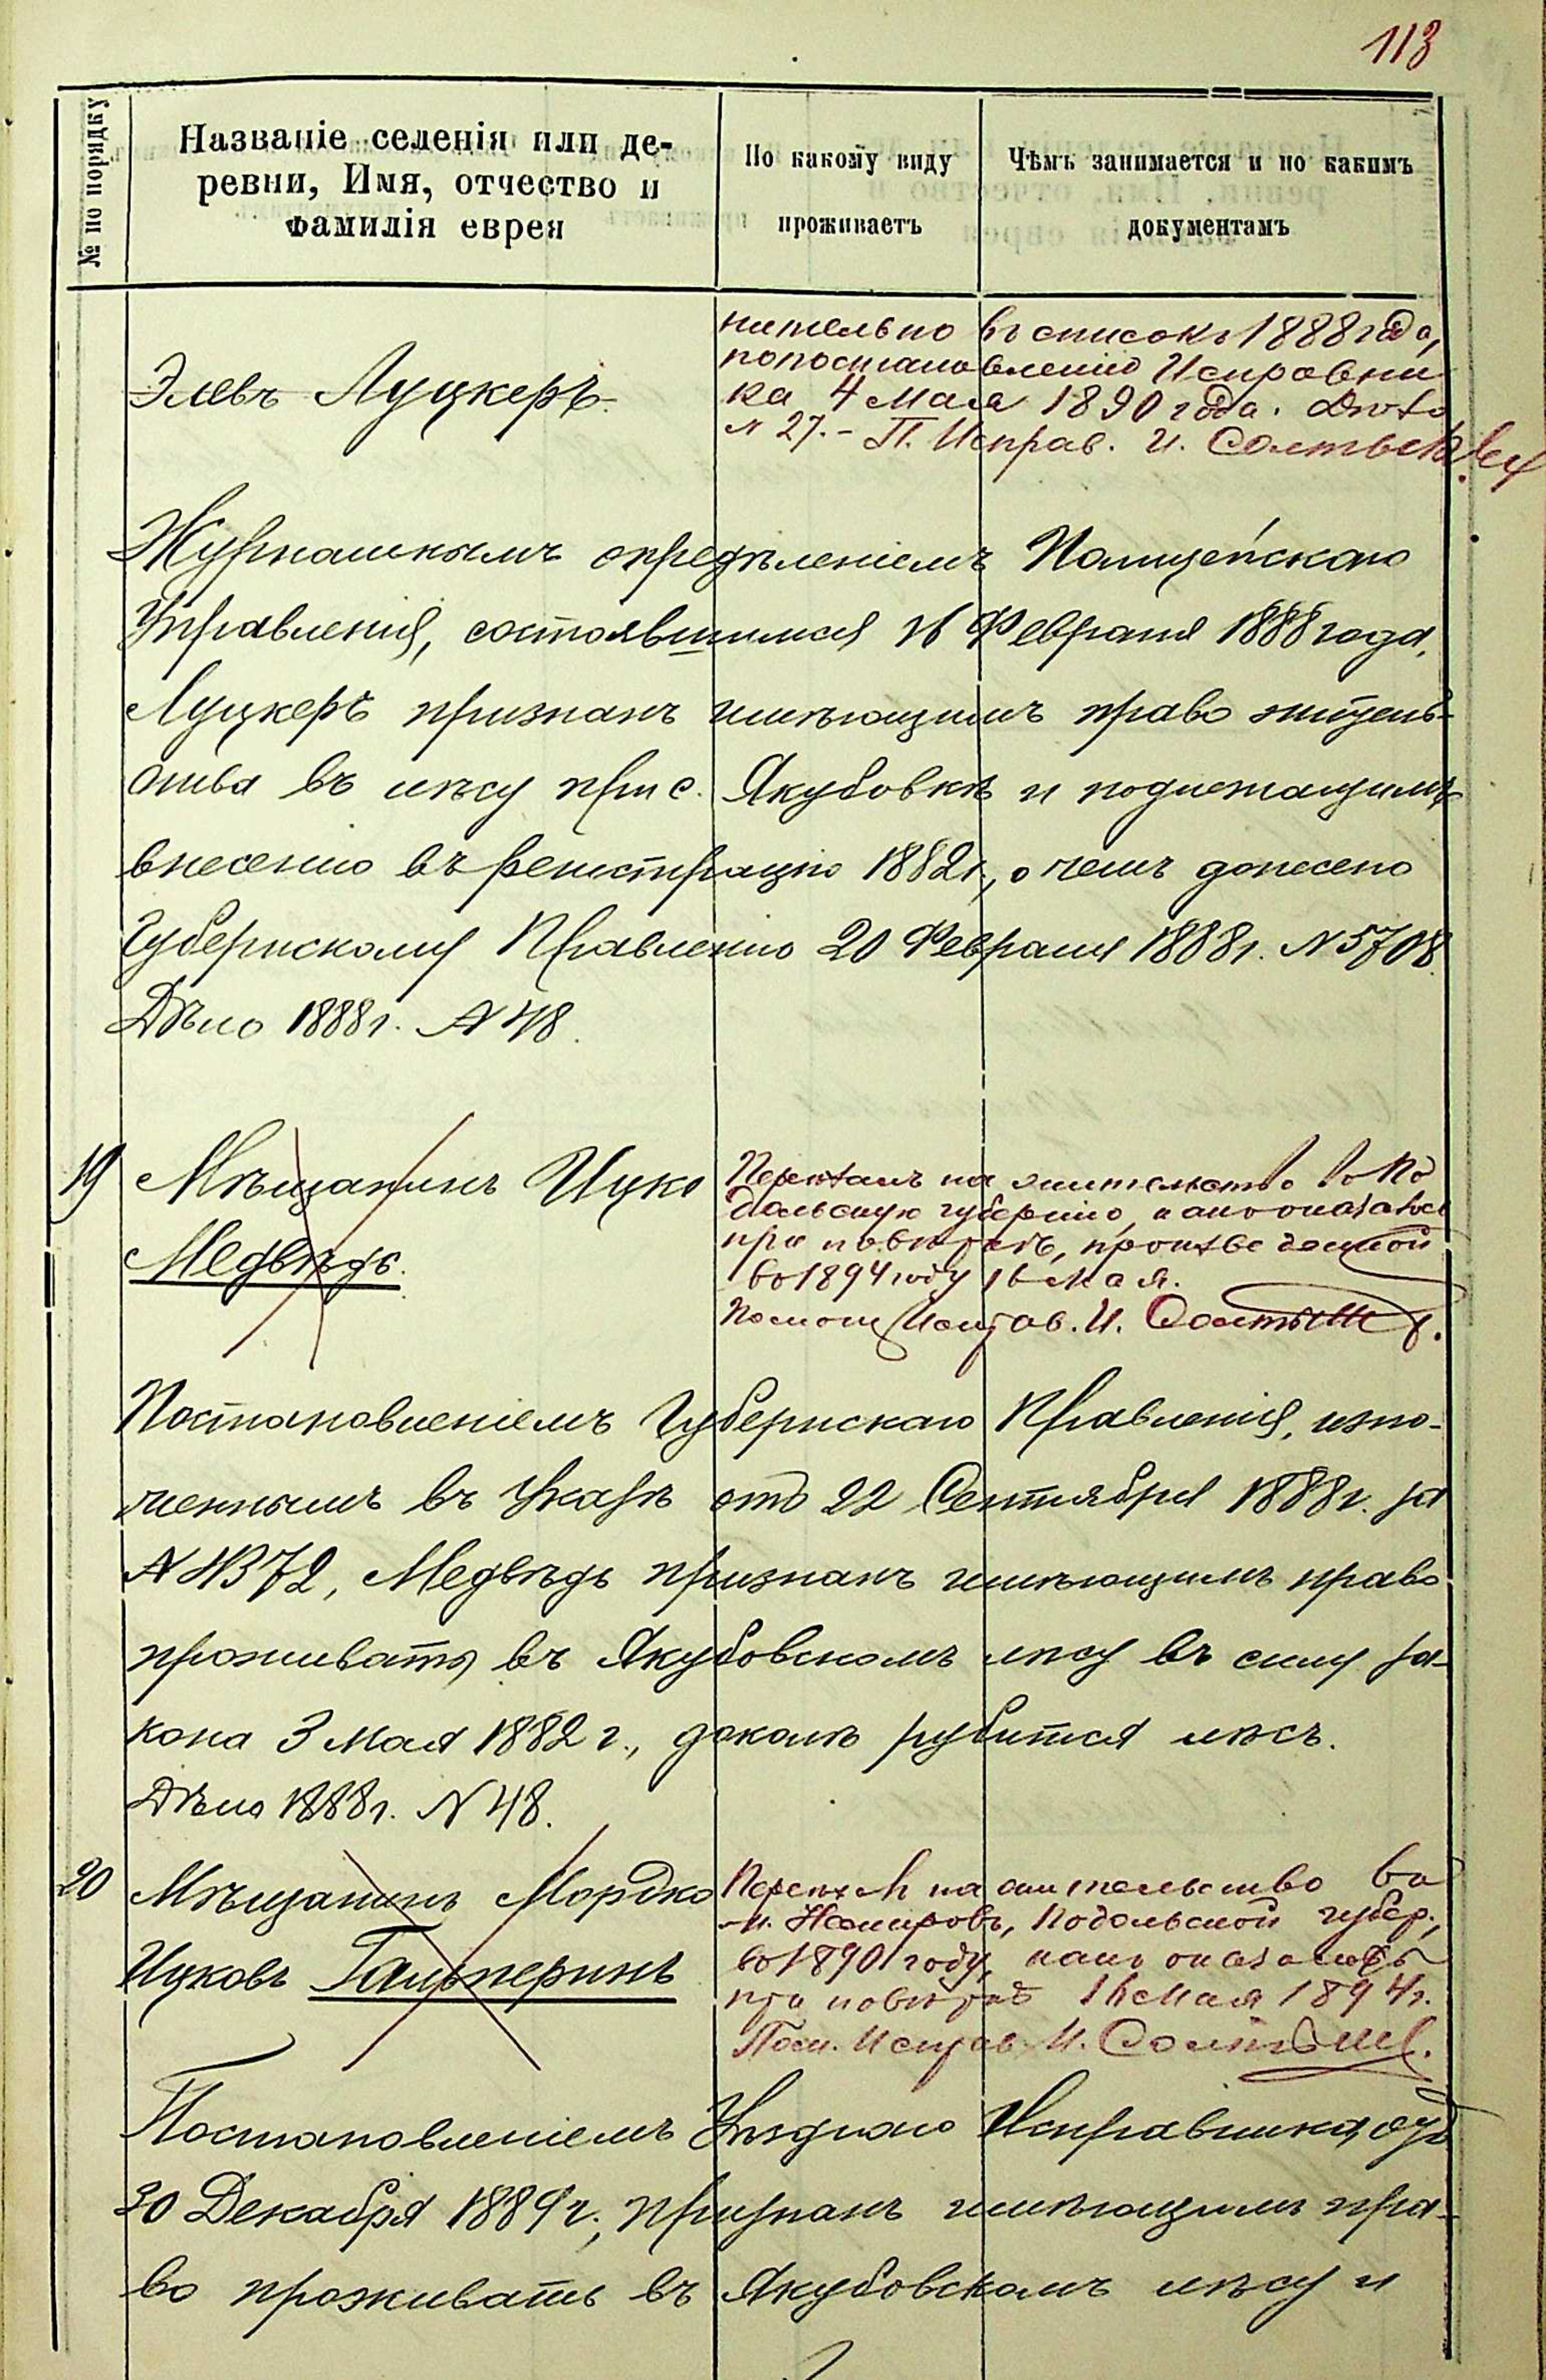 113
№ по порядку
Названіе селенія или де-
ревни, Имя, отчество и
фамилія еврея
По какому виду
проживаетъ
Чѣмъ занимается и по какимъ
документамъ
нительно въ списокъ 1888 года,
по постановленію Исправни
ка 4 Мая 1890 года. Дѣло
№ 27. - П. Исправ. И.
Элевъ Луцкеръ.
Журнальнымъ опредѣленіемъ Полицейскаго
Управленія, состоявшимся 16 Февраля 1888 года,
Луцкеръ признанъ имѣющимъ право житель-
ства въ лѣсу при с. Якубовкѣ и подлежащимъ
внесенію въ регистрацію 1882 г., о чемъ донесено
Губернскому Правленію 20 Февраля 1888 г. № 5708
Дѣло 1888 г. № 48.
19
Мѣщанинъ Ицко
Медвѣдь.
Переѣхалъ на жительство въ По
дольскую губернію, какъ оказалось
при повѣркѣ, произведенной
въ 1894 году 16 Мая.
Помощ. Исправ. И.
Постановленіемъ Губернскаго Правленія, изло-
женнымъ въ Указѣ отъ 22 Сентября 1888 г. за
№ 4372, Медвѣдь признанъ имѣющимъ право
проживать въ Якубовскомъ лѣсу въ силу за-
кона 3 Мая 1882 г., доколѣ рубится лѣсъ.
Дѣло 1888 г. № 48.
20
Мѣщанинъ Мордко
Ицковъ Гальперинъ
Переѣхалъ на жительство въ
м. Немировъ, Подольской губер.,
въ 1890 году, какъ оказалось
при повѣркѣ 16 Мая 1894 г.
Пом. Исправ. И.
Постановленіемъ Уѣзднаго Исправника, отъ
30 Декабря 1889 г., признанъ имѣющимъ пра-
во проживать въ Якубовскомъ лѣсу и